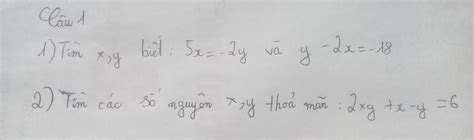 Câu 1
1) Tìm x,y biết: 5x=-2y và y -2x=-18
2) Tìm các số nguyên x,y thoả mãn: 2xy +x-y =6